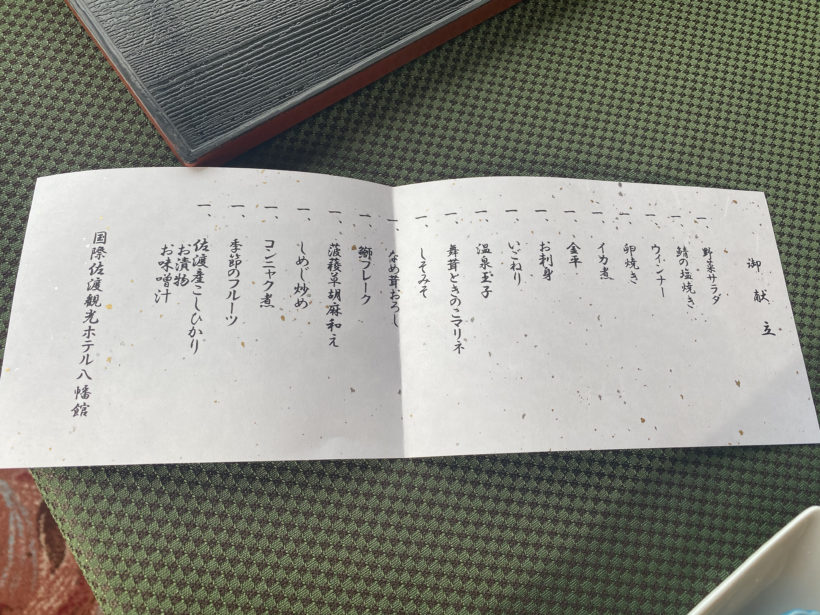 御献立
一、野菜サラダ
一、鯖の塩焼き
一、ウィンナー
一、卵焼き
一、イカ煮
一、金平
一、お刺身
一、いごねり
一、温泉玉子
一、舞茸ときのこマリネ
一、しそみそ
一、なめ茸おろし
一、鰤フレーク
一、菠薐草胡麻和え
一、しめじ炒め
一、コンニャク煮
一、季節のフルーツ
一、佐渡産こしひかり
お漬物
お味噌汁
国際佐渡観光ホテル八幡館